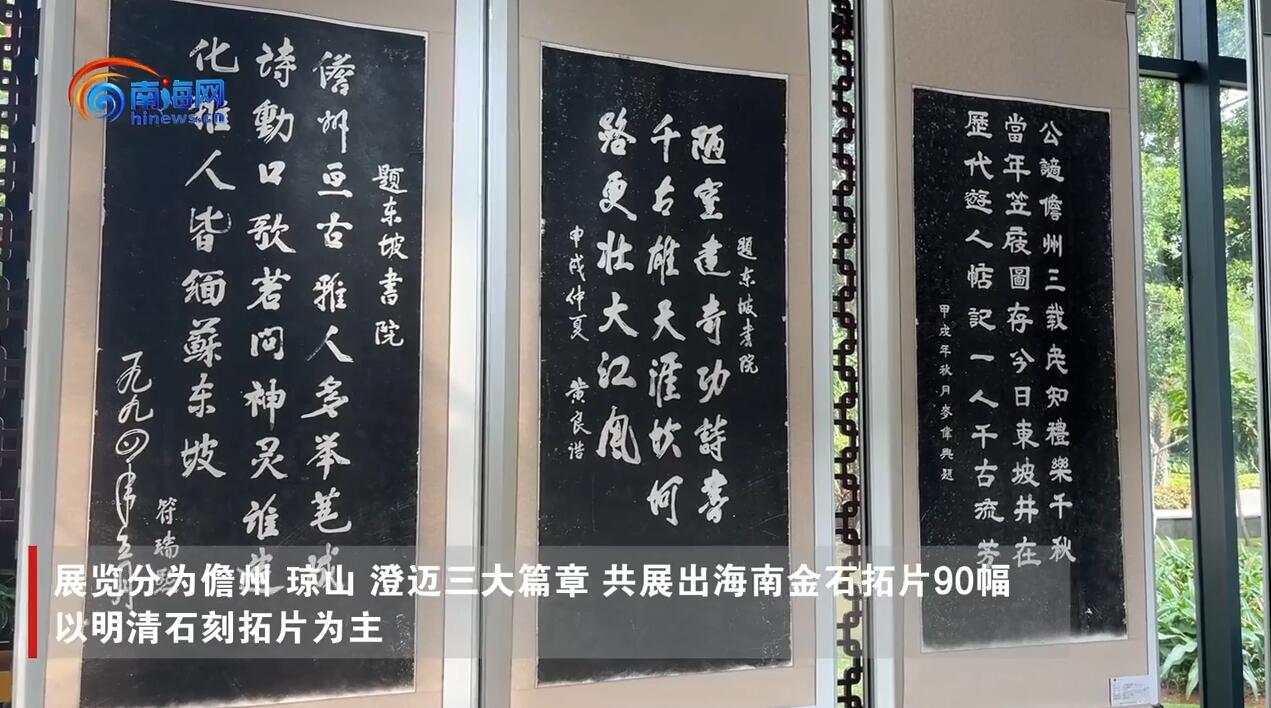 南海网
hinews.cn
题东坡书院
儋州亘古雅人多举笔
詩動口歌若问神灵谁
化 人皆缅蘇东坡
一九九四年五月
符瑞
题东坡書院
陋室建奇功詩書
千古雄天涯坎坷
路更壮大江風
甲戌仲夏 黄良浩
公謫儋州三載民知禮樂千秋
當年笠屐圖存今日東坡井在
歷代遊人惦記一人千古流芳
甲戌年秋月麥偉興題
展览分为儋州 琼山 澄迈三大篇章 共展出海南金石拓片90幅
以明清石刻拓片为主